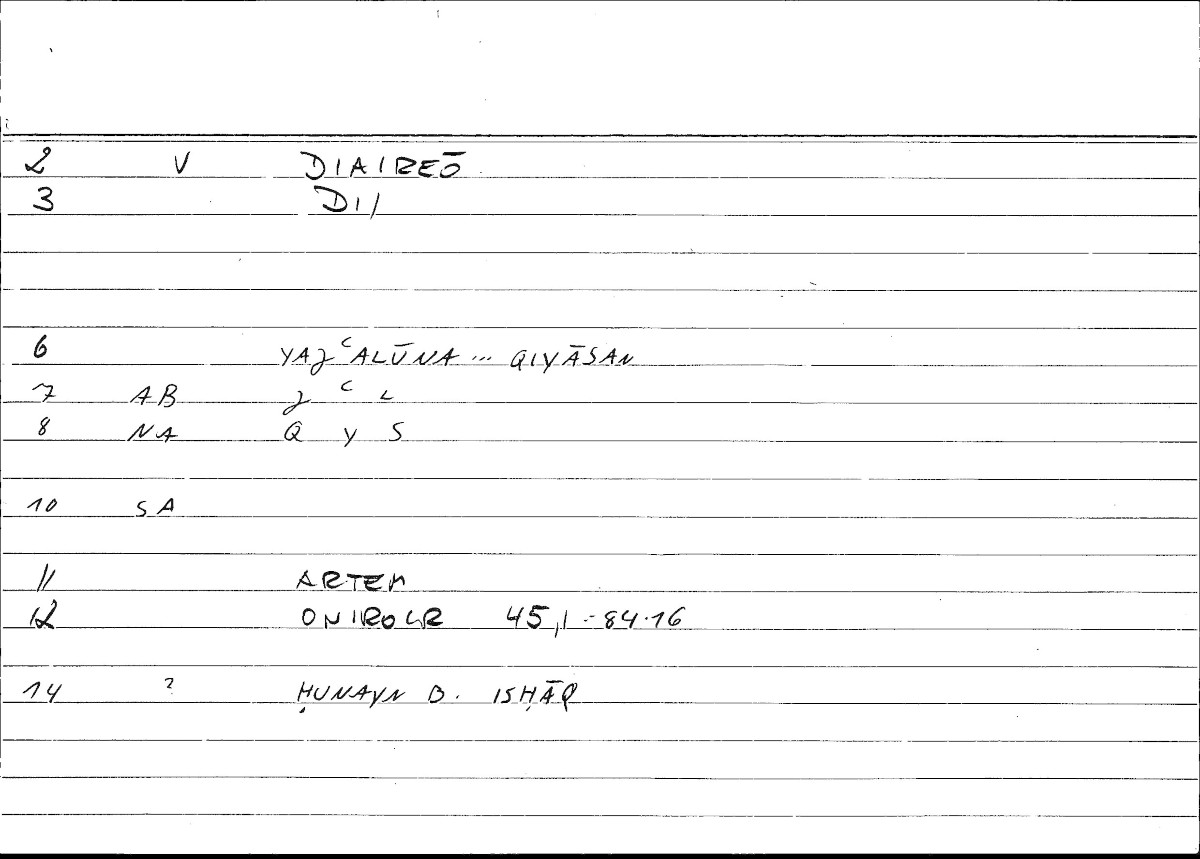 2 V DIAIREŌ
3 DI/
6 YAJʿALŪNA ... QIYĀSAN
7 AB J ʿ L
8 NA Q Y S
10 SA
11 ARTEM
12 ONIROCR 45,1-84.16
14 ? ḤUNAYN B. ISḤĀQ